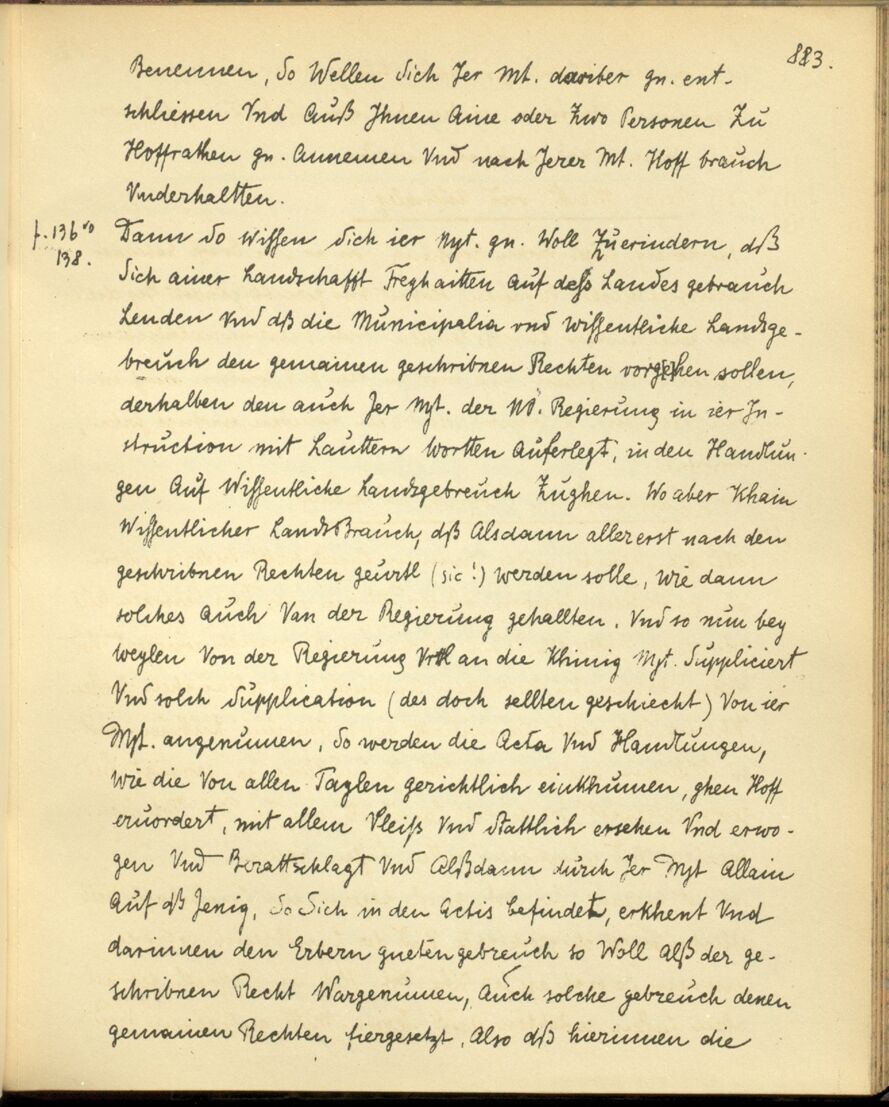 883.
Benennen, So Wellen Sich Jer Mt. dariber gn. ent-
schliessen Vnd Auß Jhnen Aine oder Zwo Personen Zu
Hoffrathen gn. Annemen Vnd nach Jerer Mt. Hoff brauch
Vnderhaltten.
f. 136vo
138.
Dann So wissen Sich ier Myt. gn. Woll Zuerindern, dß
Sich ainer Landschafft Freyhaitten Auf dess Landes gebrauch
Lenden vnd dß die Municipalia vnd wissentliche Landsge-
breuch den gemainen geschribnen Rechten vorgehen sollen,
derhalben den auch Jer Myt. der NÖ. Regierung in ier In-
struction mit Lauttern Wortten Auferlegt, in den Handlun-
gen Auf Wissentliche Landsgebreuch Zughen. Wo aber Khain
Wissentlicher LandsBrauch, dß Alsdann aller erst nach den
geschribnen Rechten geurtl (sic!) werden solle, wie dann
solches Auch Van der Regierung gehallten. Vnd so nun bey
weylen Von der Regierung Vrtl an die Khinig Myt. Suppliciert
Vnd solch Supplication (des doch sellten geschiecht) Von ier
Myt. angenumen, So werden die Acta Vnd Handlungen,
wie die Von allen Taylen gerichtlich einkhumen, ghen Hoff
eruordert, mit allem Vleiß Vnd Stattlich ersehen Vnd erwo-
gen Vnd Berattschlagt Vnd Alßdann durch Jer Myt Allain
Auf dß Jenig, So Sich in den Actis befindet, erkhent Vnd
darinnen den Erbern gueten gebreuch so Woll Alß der ge-
schribnen Recht Wargenumen, Auch solche gebreuch denen
gemainen Rechten fiergesetzt, Also dß hierinnen die